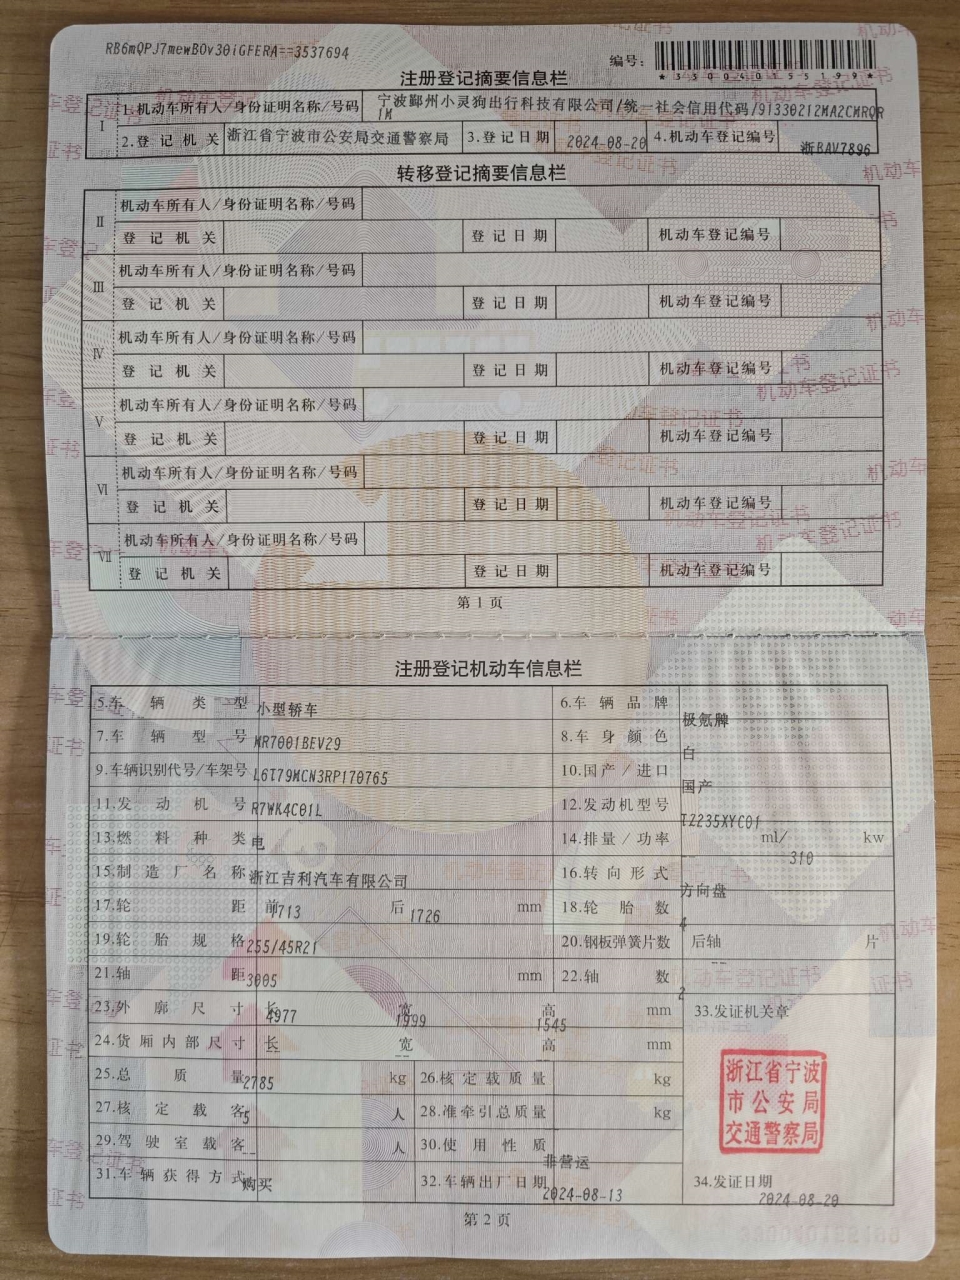 RB6mQPJ7mewBOv30iGFERA==3537694
编号：
*350040555199*
注册登记摘要信息栏
I 1.机动车所有人/身份证明名称/号码 宁波鄞州小灵狗出行科技有限公司/统一社会信用代码/91330212MA2CMRQR
1M
2.登记机关 浙江省宁波市公安局交通警察局 3.登记日期 2024-08-20 4.机动车登记编号 浙BAV7896
转移登记摘要信息栏
II 机动车所有人/身份证明名称/号码
登记机关 登记日期 机动车登记编号
III 机动车所有人/身份证明名称/号码
登记机关 登记日期 机动车登记编号
IV 机动车所有人/身份证明名称/号码
登记机关 登记日期 机动车登记编号
V 机动车所有人/身份证明名称/号码
登记机关 登记日期 机动车登记编号
VI 机动车所有人/身份证明名称/号码
登记机关 登记日期 机动车登记编号
VII 机动车所有人/身份证明名称/号码
登记机关 登记日期 机动车登记编号
第1页
注册登记机动车信息栏
5.车辆类型 小型轿车 6.车辆品牌 极氪牌
7.车辆型号 MR7001BEV29 8.车身颜色 白
9.车辆识别代号/车架号 L6T79MCN3RP170765 10.国产/进口 国产
11.发动机号 R7WK4C01L 12.发动机型号 TZ235XYC01
13.燃料种类 电 14.排量/功率 -- ml/ 310 kw
15.制造厂名称 浙江吉利汽车有限公司 16.转向形式 方向盘
17.轮距 前 1713 后 1726 mm 18.轮胎数 4
19.轮胎规格 255/45R21 20.钢板弹簧片数 后轴 -- 片
21.轴距 3005 mm 22.轴数 2
23.外廓尺寸 长 4977 宽 1999 高 1545 mm 33.发证机关章
24.货厢内部尺寸 长 -- 宽 -- 高 -- mm
25.总质量 2785 kg 26.核定载质量 -- kg
27.核定载客 5 人 28.准牵引总质量 -- kg
29.驾驶室载客 -- 人 30.使用性质 非营运
31.车辆获得方式 购买 32.车辆出厂日期 2024-08-13 34.发证日期 2024-08-20
浙江省宁波
市公安局
交通警察局
第2页